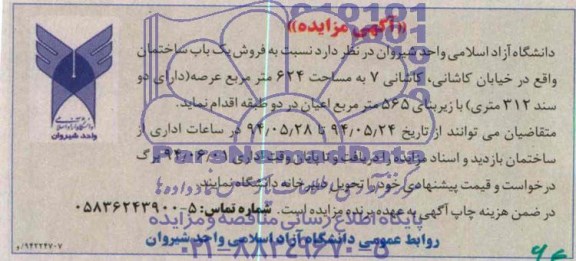 «آگهی مزایده»
دانشگاه آزاد اسلامی واحد شیروان در نظر دارد نسبت به فروش یک باب ساختمان
واقع در خیابان کاشانی، کاشانی ۷ به مساحت ۶۲۴ متر مربع عرصه(دارای دو
سند ۳۱۲ متری) با زیربنای ۵۶۵ متر مربع اعیان در دو طبقه اقدام نماید.
متقاضیان می توانند از تاریخ ۹۴/۰۵/۲۴ تا ۹۴/۰۵/۲۸ در ساعات اداری از
ساختمان بازدید و اسناد مزایده را دریافت و تا پایان وقت اداری ۹۴/۰۶/۰۱ برگ
درخواست و قیمت پیشنهادی خود را تحویل دبیرخانه دانشگاه نمایند.
در ضمن هزینه چاپ آگهی به عهده برنده مزایده است. شماره تماس: ۵-۰۵۸۳۶۲۴۳۹۰۰
روابط عمومی دانشگاه آزاد اسلامی واحد شیروان
واحد شیروان
۹۴۲۲۴۷۰۷/و
پایگاه اطلاع رسانی مناقصه و مزایده
۰۲۱-۸۸۳۴۹۶۷۰-۵